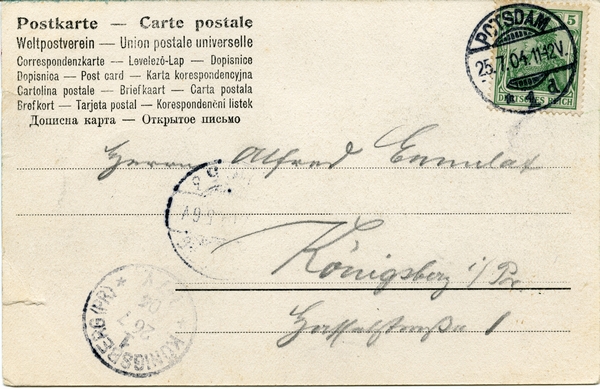 Postkarte — Carte postale
Weltpostverein — Union postale universelle
Correspondenzkarte — Levelező-Lap — Dopisnice
Dopisnica — Post card — Karta korespondencyjna
Cartolina postale — Briefkaart — Carta postala
Brefkort — Tarjeta postal — Korespondenční listek
Дописна карта — Открытое письмо
POTSDAM
25.7.04.11-12V.
5
DEUTSCHES REICH
Herrn Alfred
Königsberg i/Pr.
1
KÖNIGSBERG (PR)